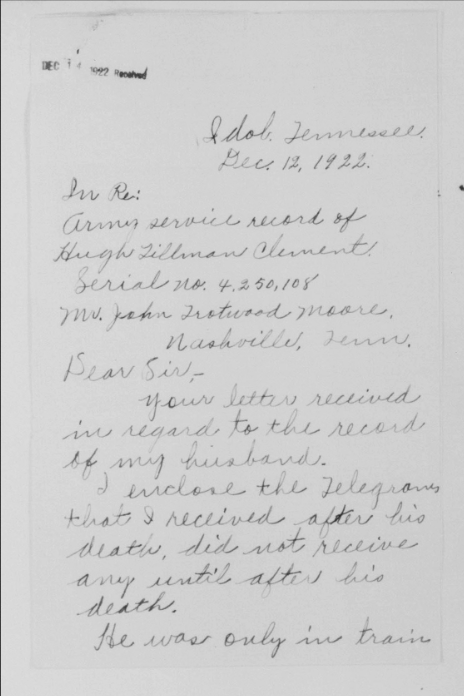 DEC 14 1922 Received
Idol, Tennessee.
Dec. 12, 1922.
In Re:
Army service record of
Hugh Tillman Clement.
Serial no. 4,250,108
Mr. John Trotwood Moore,
Nashville, Tenn.
Dear Sir,-
Your letter received
in regard to the record
of my husband.
I enclose the Telegrams
that I received after his
death, did not receive
any until after his
death.
He was only in train